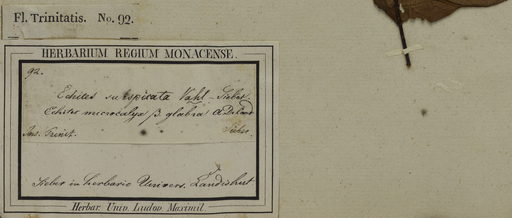 Fl. Trinitatis. No. 92.
HERBARIUM REGIUM MONACENSE.
92.
Echites subspicata Vahl - Sieber
Echites microcalyx β. glabra A DeCand
Ins. Trinit. Sieber.
Sieber in herbario Univers. Landishut
Herbar. Univ. Ludov. Maximil.